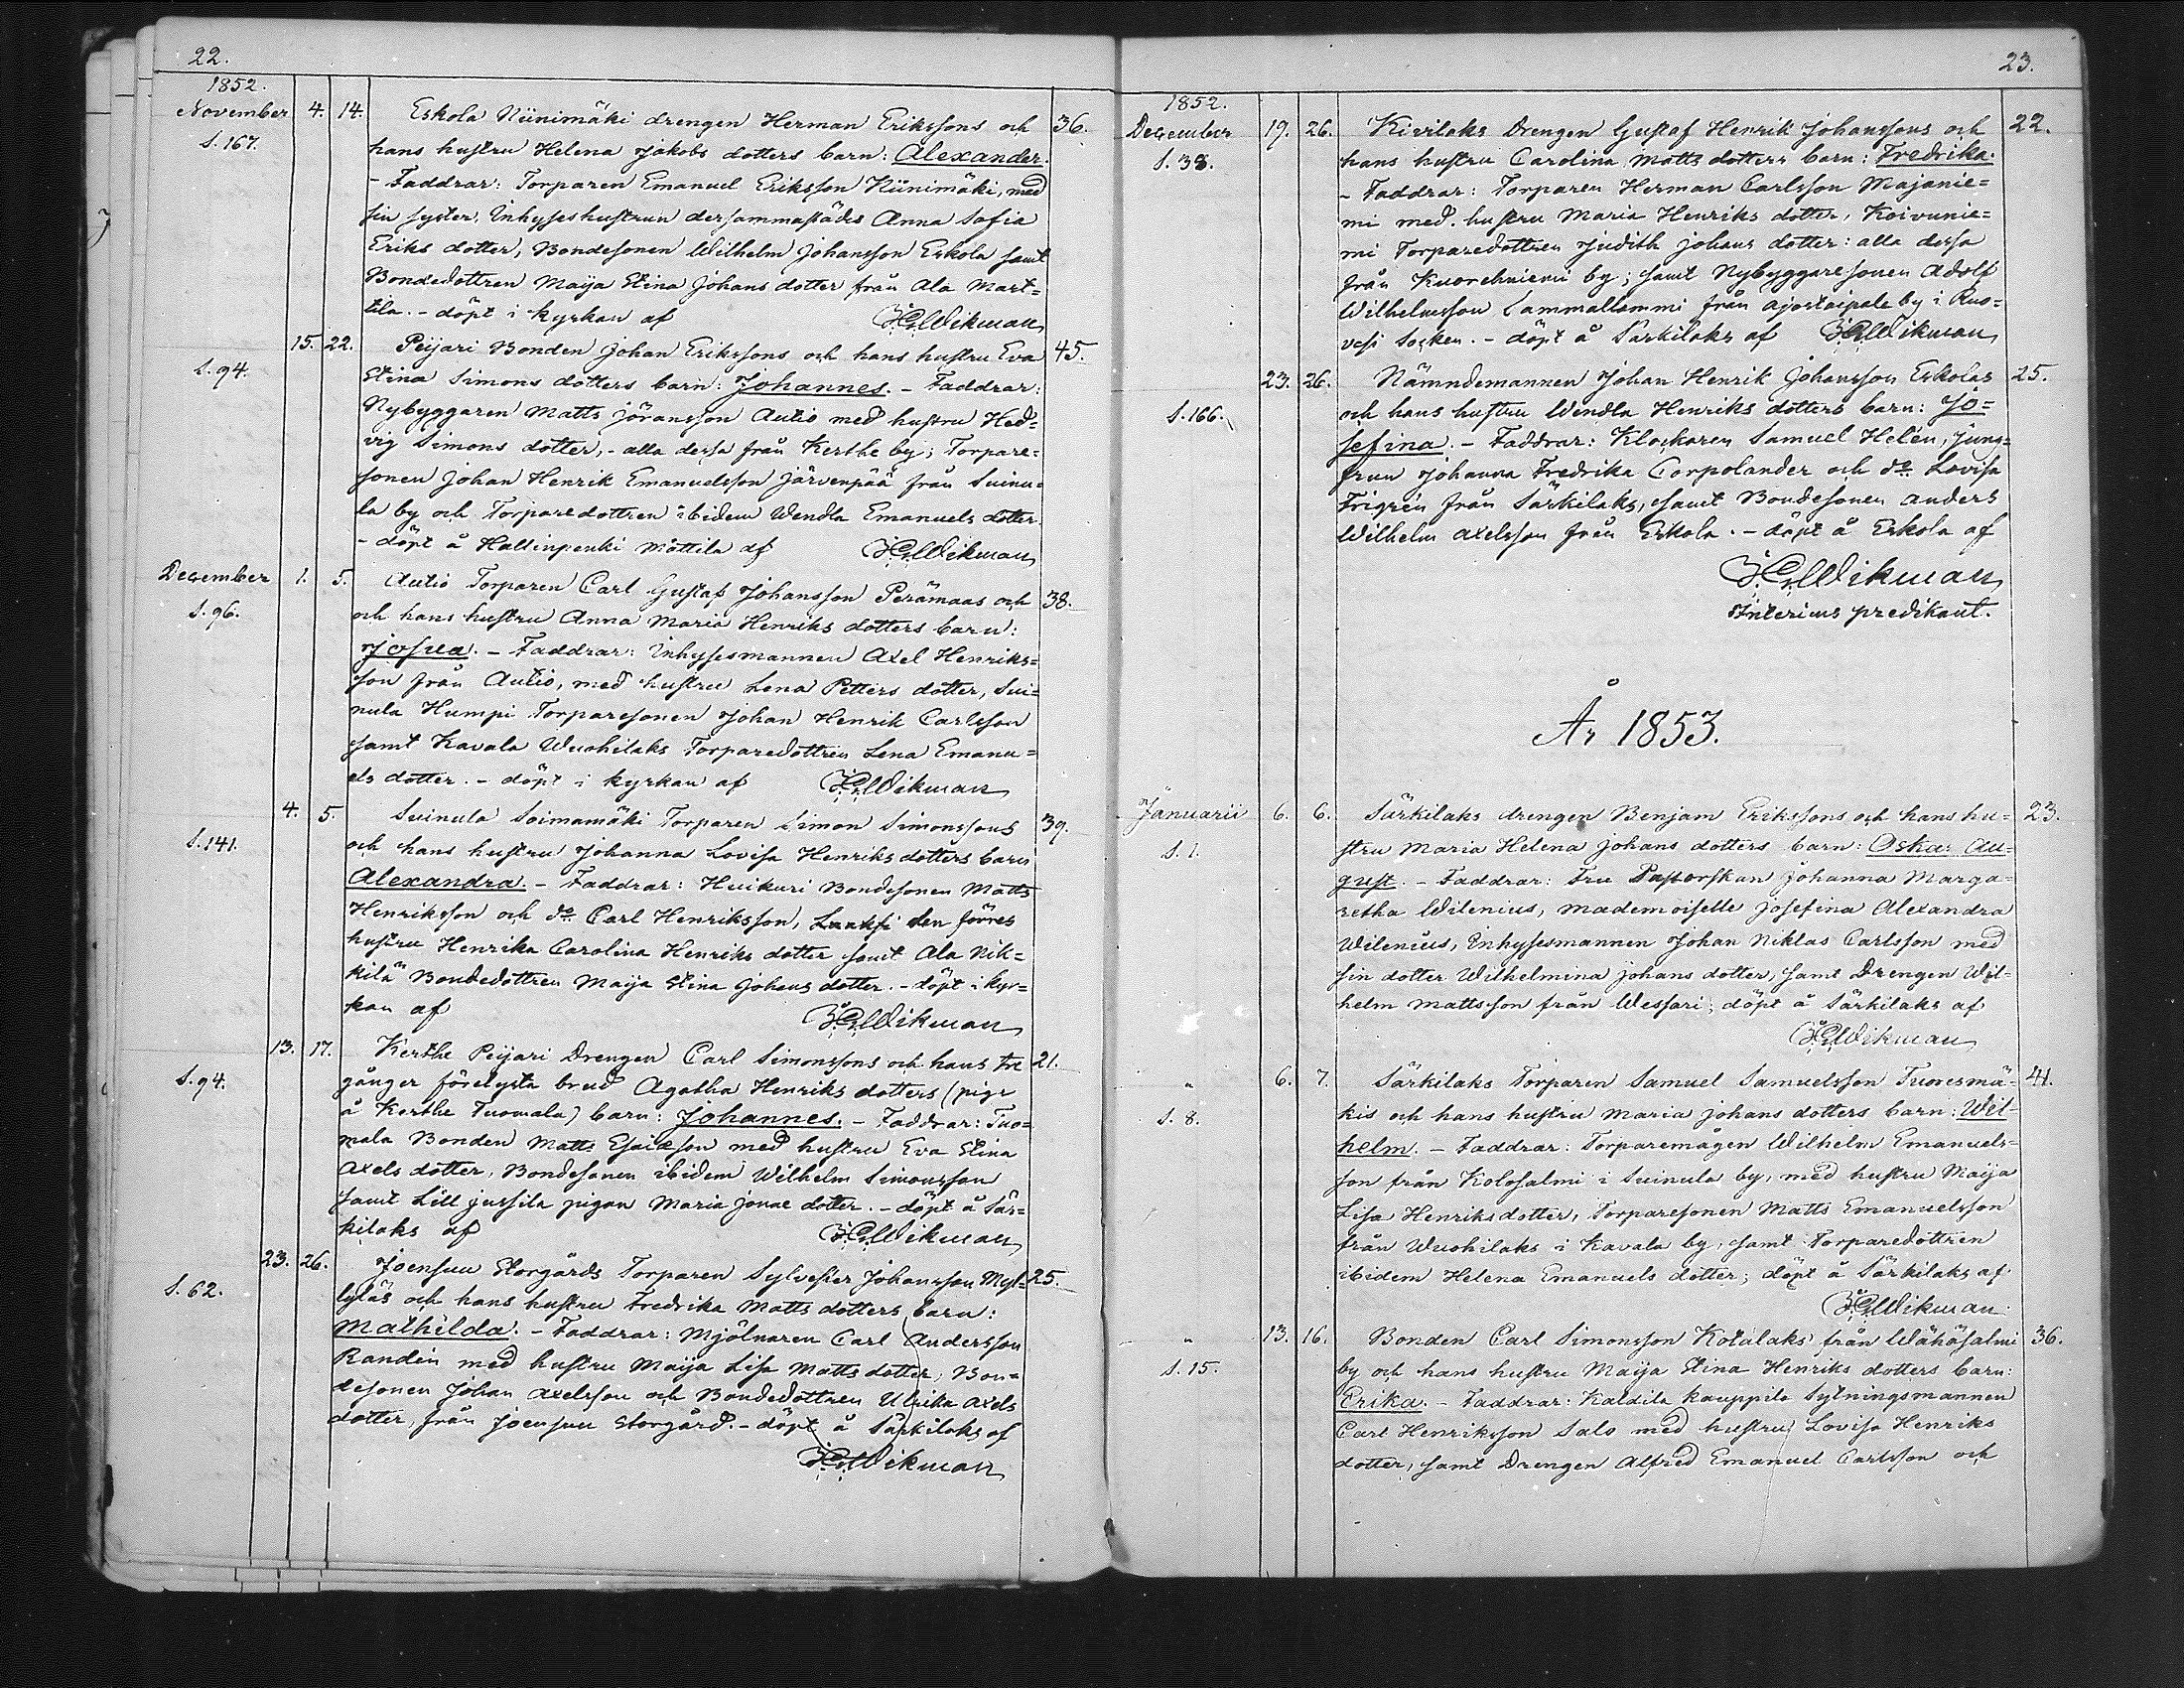 22.
1852.
November 4. 14. Eskola Niinimäki drengen Herman Erikssons och 36.
S. 167. hans hustru Helena Jakobs dotters barn: Alexander.
- Faddrar: Torparen Emanuel Eriksson Niinimäki, med
sin syster, Inhyseshustrun dersammastädes Anna Sofia
Eriks dotter, Bondesonen Wilhelm Johansson Eskola samt
Bondedottren Maija Stina Johans dotter från Ala Mart=
tila. - döpt i kyrkan af HGWikman
15. 22. Peijari Bonden Johan Erikssons och hans hustru Eva 45.
S. 94. Stina Simons dotters barn: Johannes. - Faddrar:
Nybyggaren Matts Jöransson Autio med hustru Hed=
vig Simons dotter, - alla dessa från Kerthe by; Torpare=
sonen Johan Henrik Emanuelsson Järvenpää från Suinu=
la by och Torparedottren ibidem Wendla Emanuels dotter
- döpt å Hallinpenki Mottila af HGWikman
December 1. 5. Autio Torparen Carl Gustaf Johansson Perämaas och 38.
S. 96. och hans hustru Anna Maria Henriks dotters barn:
Josua. - Faddrar: Inhysesmannen Axel Henriks=
son från Autio, med hustru Lena Petters dotter, Sui=
nula Humpi Torparesonen Johan Henrik Carlsson
samt Kavala Wuohilaks Torparedottren Lena Emanu=
els dotter. - döpt i kyrkan af HGWikman
4. 5. Suinula Soimamäki Torparen Simon Simonssons 39.
S. 141. och hans hustru Johanna Lovisa Henriks dotters barn
Alexandra. - Faddrar: Huikuri Bondesonen Matts
Henriksson och do Carl Henriksson, den förres
hustru Henrika Carolina Henriks dotter samt Ala Nik=
kilä Bondedottren Maija Stina Johans dotter. - döpt i kyr=
kan af HGWikman
13. 17. Kerthe Peijari Drengen Carl Simonssons och hans tre 21.
S. 94. gånger förelysta brud Agatha Henriks dotters (piga
å Kerthe Tuomala) barn: Johannes. - Faddrar: Tuo=
mala Bonden Matts Esaiasson med hustru Eva Stina
Axels dotter, Bondesonen ibidem Wilhelm Simonsson
samt Lill Jussila pigan Maria Jonae dotter. - döpt å Sär=
kilaks af HGWikman
23. 26. Joensuu Storgårds Torparen Sylvester Johansson Myl= 25.
S. 62. lyläs och hans hustru Fredrika Matts dotters barn:
Mathilda. - Faddrar: Mjölnaren Carl Andersson
Randén med hustru Maija Lisa Matts dotter, Bon=
desonen Johan Axelsson och Bondedottren Ulrika Axels
dotter, från Joensuu Storgård. - döpt å Särkilaks af
HGWikman
23.
1852.
December 19. 26. Kivilaks Drengen Gustaf Henrik Johanssons och 22.
S. 38. hans hustru Carolina Matts dotters barn: Fredrika.
- Faddrar: Torparen Herman Carlsson Majanie=
mi med hustru Maria Henriks dotter, Koivunie=
mi Torparedottren Judith Johans dotter: alla dessa
från Kuorehniemi by; samt Nybyggaresonen Adolf
Wilhelmsson Lammallammi från Ajostaipale by i Ruo=
vesi Socken. - döpt å Särkilaks af HGWikman
23. 26. Nämndemannen Johan Henrik Johansson Eskolas 25.
S. 166. och hans hustru Wendla Henriks dotters barn: Jo=
sefina. - Faddrar: Klockaren Samuel Helén, Jung=
frun Johanna Fredrika Corpolander och do Lovisa
Frigrén från Särkilaks, samt Bondesonen Anders
Wilhelm Axelsson från Eskola. - döpt å Eskola af
HGWikman
Interims predikant.
År 1853.
Januarii 6. 6. Särkilaks drengen Benjam Erikssons och hans hu= 23.
S. 1. stru Maria Helena Johans dotters barn: Oskar Au=
gust. - Faddrar: Fru Pastorskan Johanna Marga=
retha Wilenius, Mademoiselle Josefina Alexandra
Wilenius, Inhysesmannen Johan Niklas Carlsson med
sin dotter Wilhelmina Johans dotter, samt Drengen Wil=
helm Mattsson från Wessari; döpt å Särkilaks af
HGWikman
" 6. 7. Särkilaks Torparen Samuel Samuelsson Tuoresmä= 41.
S. 8. kis och hans hustru Maria Johans dotters barn: Wil=
helm. - Faddrar: Torparemågen Wilhelm Emanuels=
son från Kolosalmi i Suinula by, med hustru Maija
Lisa Henriksdotter, Torparesonen Matts Emanuelsson
från Wuohilaks i Kavala by, samt Torparedottren
ibidem Helena Emanuels dotter; döpt å Särkilaks af
HGWikman
" 13. 16. Bonden Carl Simonsson Kotalaks från Wähäsalmi 36.
S. 15. by och hans hustru Maija Stina Henriks dotters barn:
Erika. - Faddrar: Kaldila Kauppila Sytningsmannen
Carl Henriksson Salo med hustru Lovisa Henriks
dotter, samt Drengen Alfred Emanuel Carlsson och